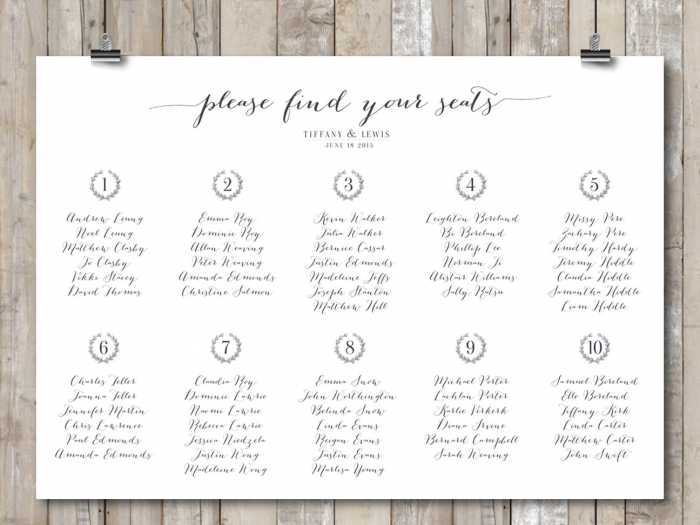 please find your seats
TIFFANY & LEWIS
JUNE 18 2015
1
Andrew Leung
Noel Leung
Matthew Clasby
Jo Clasby
Vikki Stacey
David Thomas
2
Emma Roy
Dominic Roy
Allan Weaving
Peter Weaving
Amanda Edmonds
Christine Salmon
3
Kevin Walker
Julia Walker
Bernice Cassar
Justin Edmonds
Madeleine Jeffs
Joseph Stanton
Matthew Hill
4
Leighton Boreland
Bo Boreland
Phillip Lee
Norman Jo
Alistair Williams
Sally Ratsin
5
Missy Pere
Zachary Pere
Timothy Hardy
Jeremy Hiddle
Claudia Hiddle
Samantha Hiddle
Liam Hiddle
6
Charles Teller
Joanna Teller
Jennifer Martin
Chris Lawrence
Paul Edmonds
Amanda Edmonds
7
Claudia Roy
Dominic Lawrie
Naomi Lawrie
Rebecca Lawrie
Jessica Niedzela
Justin Wong
Madeleine Wong
8
Emma Snow
John Worthington
Belinda Snow
Linda Evans
Reigan Evans
Justin Evans
Marlisa Young
9
Michael Porter
Lachlan Porter
Karlie Verkerk
Diana Irvine
Bernard Campbell
Sarah Weaving
10
Samuel Boreland
Elle Boreland
Tiffany Kirk
Linda Carter
Matthew Carter
John Swift